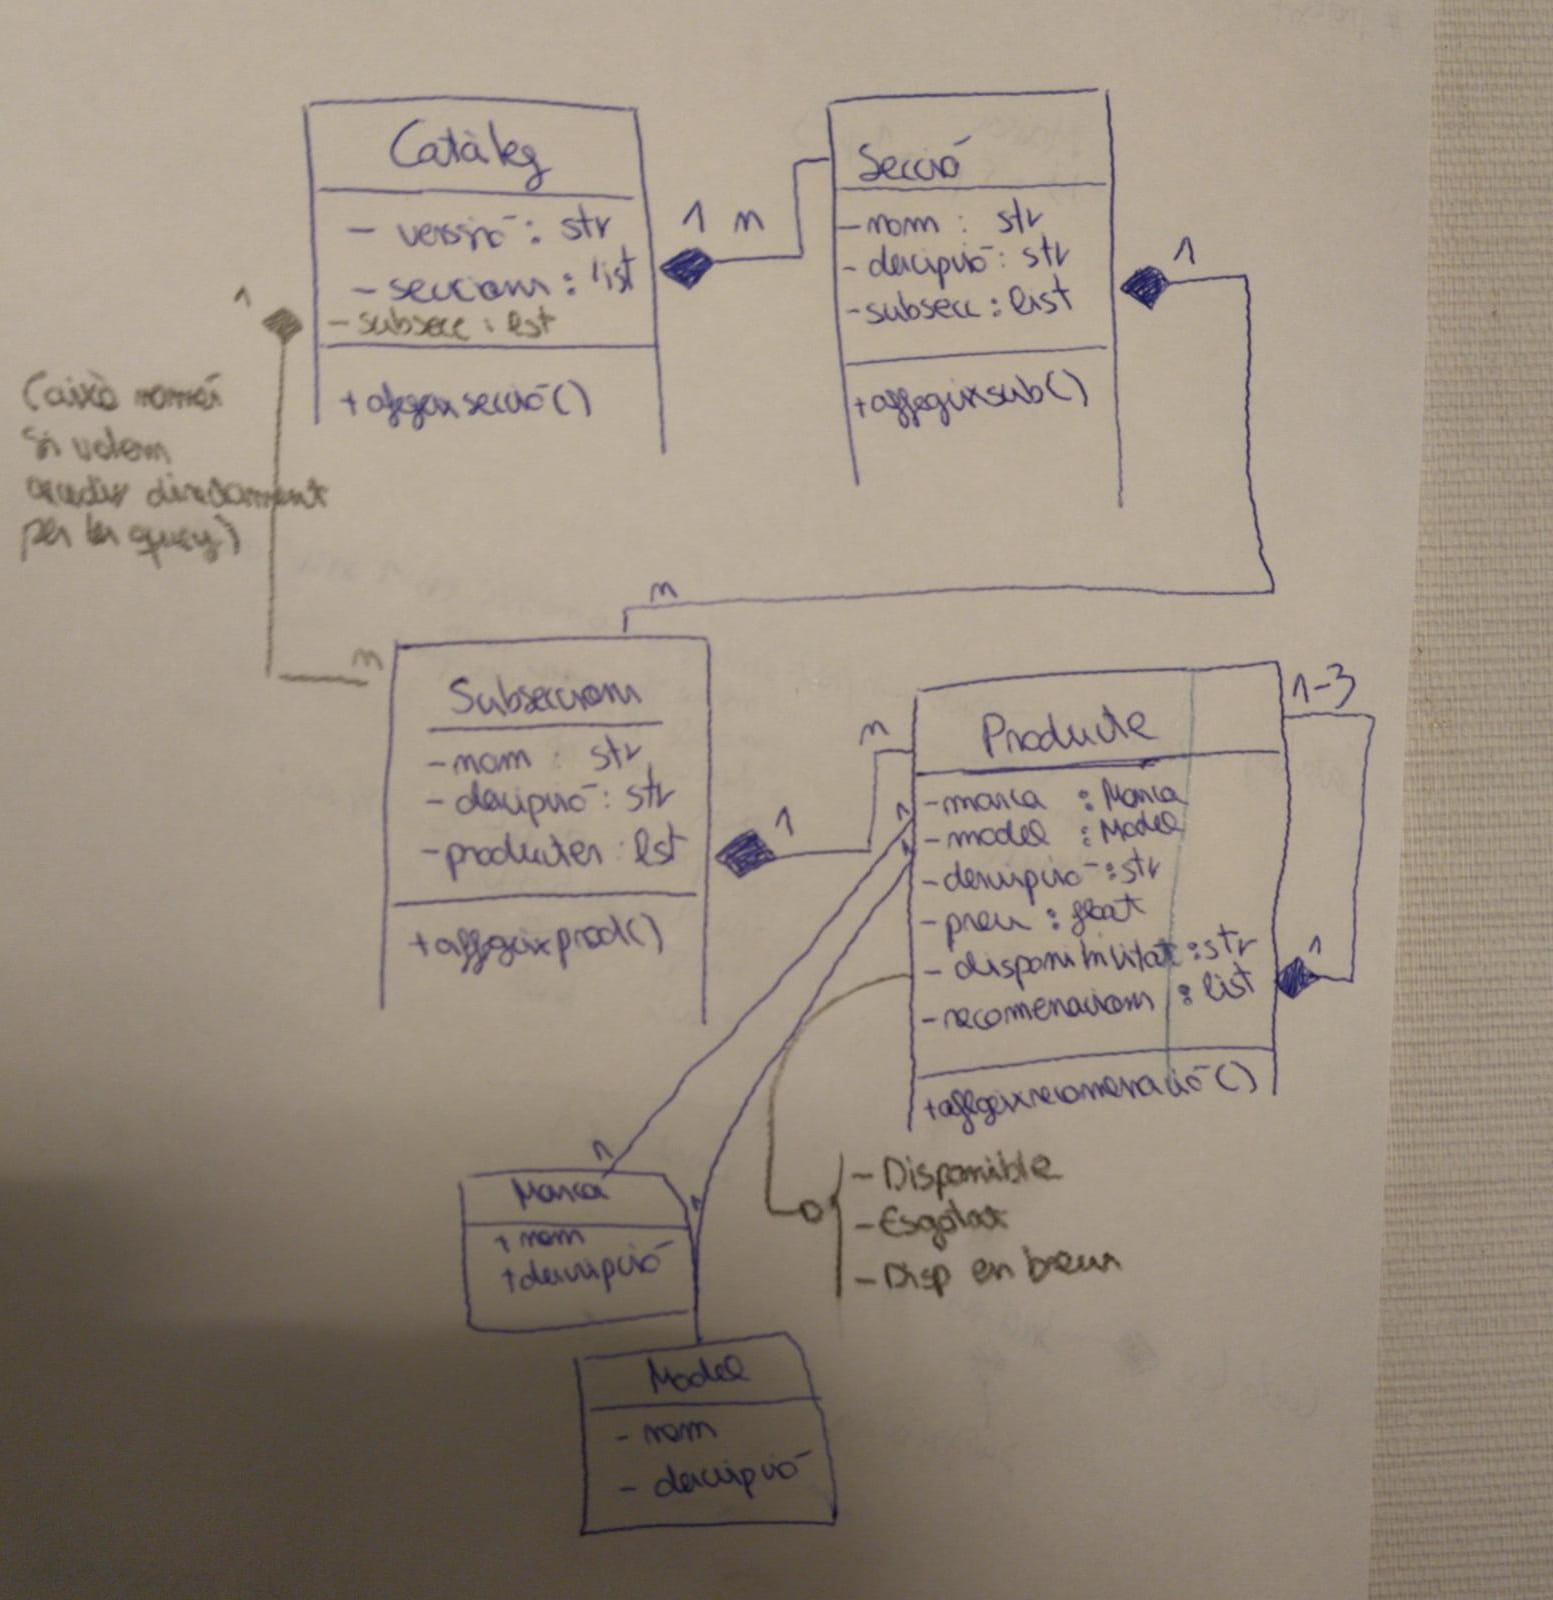 Catàleg
- versió: str
- seccions: list
- subsecc: list
+ afegeixsecció()
1 n
Secció
- nom: str
- descipció: str
- subsecc: list
+affegeixsub()
1
1
(això només
si volem
accedir directament
per les query)
n
n
Subseccions
- nom: str
- descipció: str
- productes: list
+affegeixprod()
1
n
Producte
- marca : Marca
- model : Model
- descripció: str
- preu : float
- disponibilitat: str
- recomenacions: list
+afegeixrecomenació()
1-3
1
1
1
1
Marca
+ nom
+descripció
1
Model
- nom
- descripció
- Disponible
- Esgotat
- Disp en breus